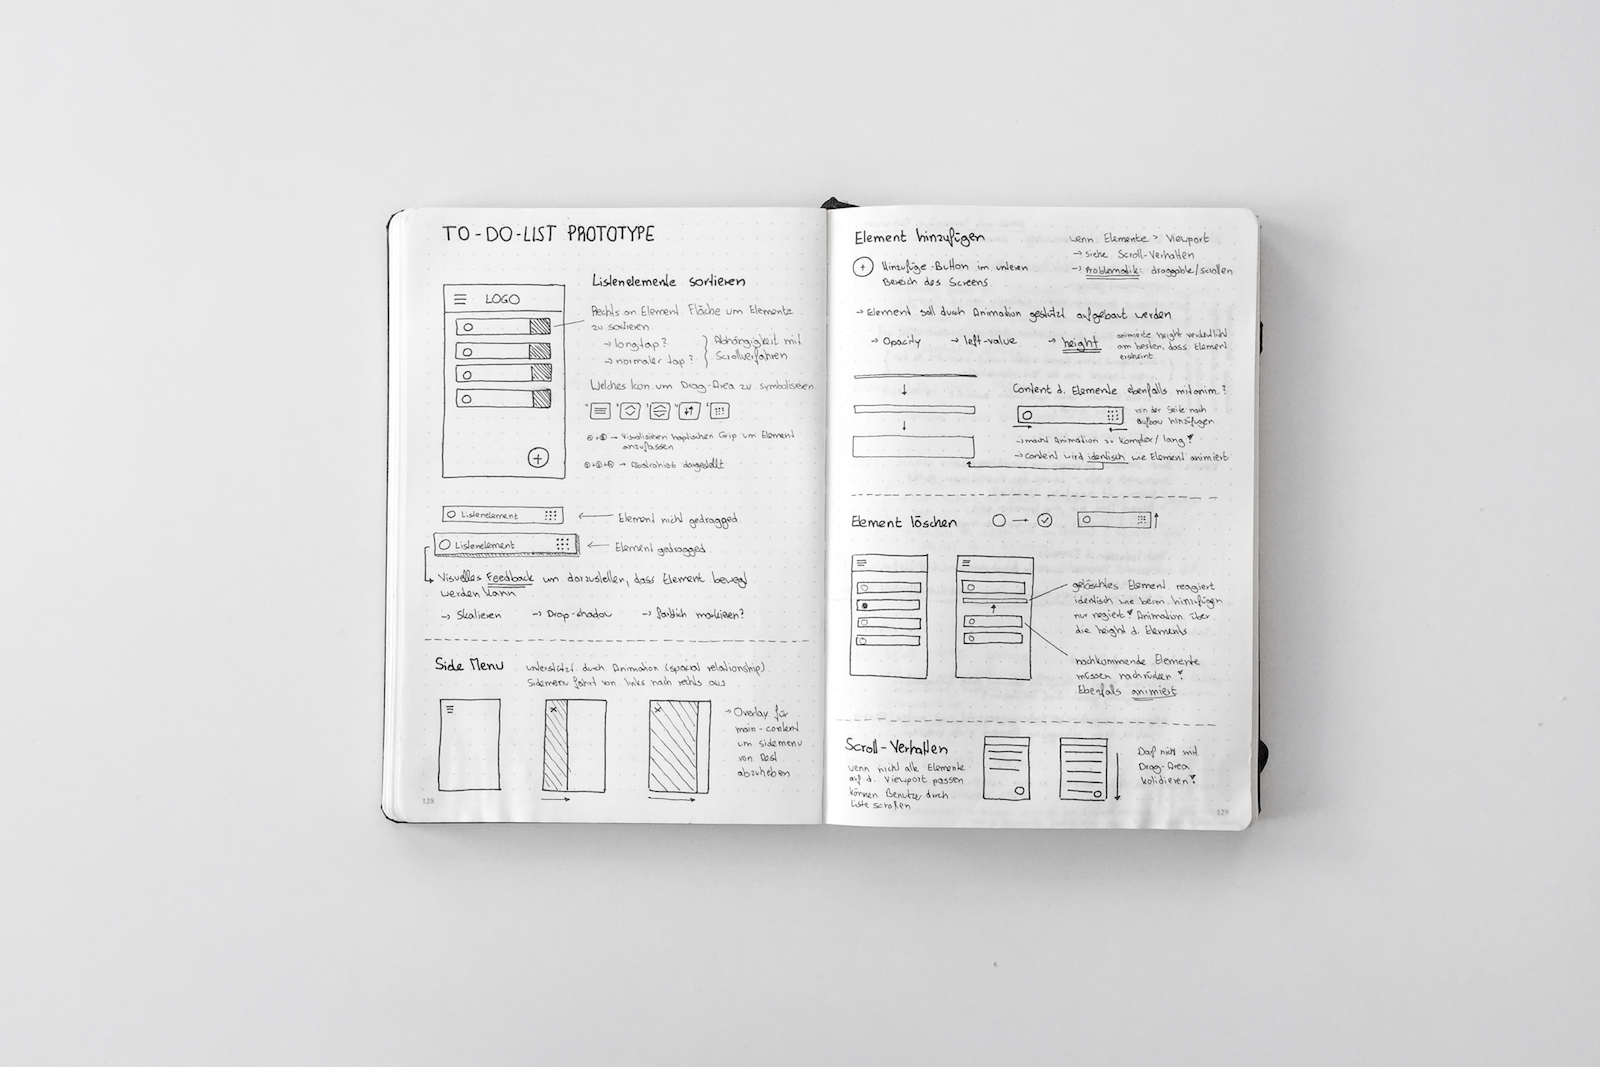 TO-DO-LIST PROTOTYPE
LOGO
Listenelemente sortieren
Rechts an Element Fläche um Elemente
zu sortieren
→ longtap?
→ normaler tap?
Abhängigkeit mit
Scrollverfahren
Welches Icon um Drag-Area zu symbolisieren
→ Visualisieren haptischen Grip um Element
anzufassen
→ Abstrahiert dargestellt
Listenelement
Element nicht gedragged.
Listenelement
Element gedragged.
Visuelles Feedback um darzustellen, dass Element bewegt
werden kann
→ Skalieren → Drop-shadow → farblich markieren?
Side Menu
unterstützt durch Animation (spacial relationship)
Sidemenu fährt von links nach rechts aus
→ Overlay für
main-content
um sidemenu
von Rest
abzuheben
128
Element hinzufügen
Hinzufüge-Button im unteren
Bereich des Screens
wenn Elemente > Viewport
→ siehe Scroll-Verhalten
→ Problematik: draggable/scrollen
→ Element soll durch Animation gestützt aufgebaut werden
→ Opacity → left-value → height
animierte height verdeutlicht
am besten, dass Element
erscheint
Content d. Elemente ebenfalls mitanim.?
von der Seite nach
aufbau hinzufügen
→ macht Animation zu komplex/lang!
→ content wird identisch wie Element animiert
Element löschen
gelöschtes Element reagiert
identisch wie beim hinzufügen
nur regiert! Animation über
die height d. Elements
nachkommende Elemente
müssen nachrücken!
Ebenfalls animiert
Scroll-Verhalten
wenn nicht alle Elemente
auf d. Viewport passen
können Benutzer durch
Liste scrollen
Darf nicht mit
Drag-Area
kolidieren!
129